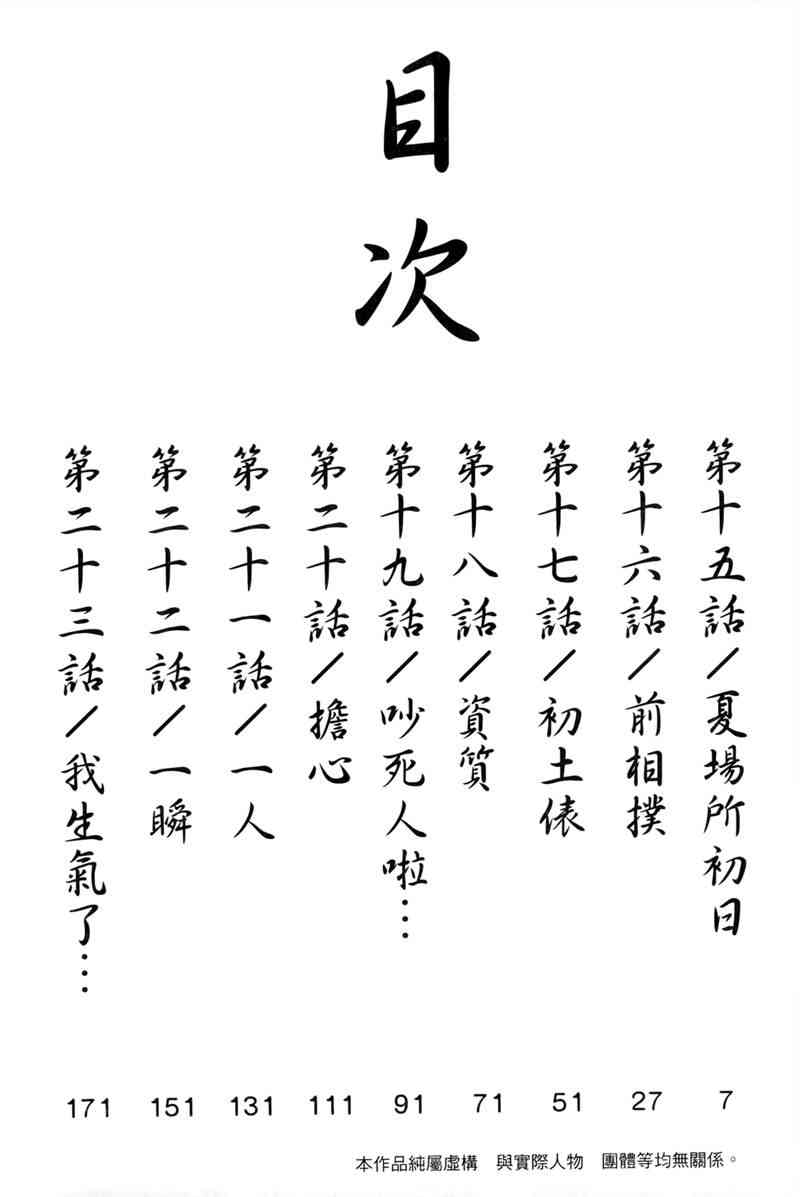 目次
第十五話/夏場所初日
7
第十六話/前相撲
27
第十七話/初土俵
51
第十八話/資質
71
第十九話/吵死人啦…
91
第二十話/擔心
111
第二十一話/一人
131
第二十二話/一瞬
151
第二十三話/我生氣了…
171
本作品純屬虛構　與實際人物　團體等均無關係。